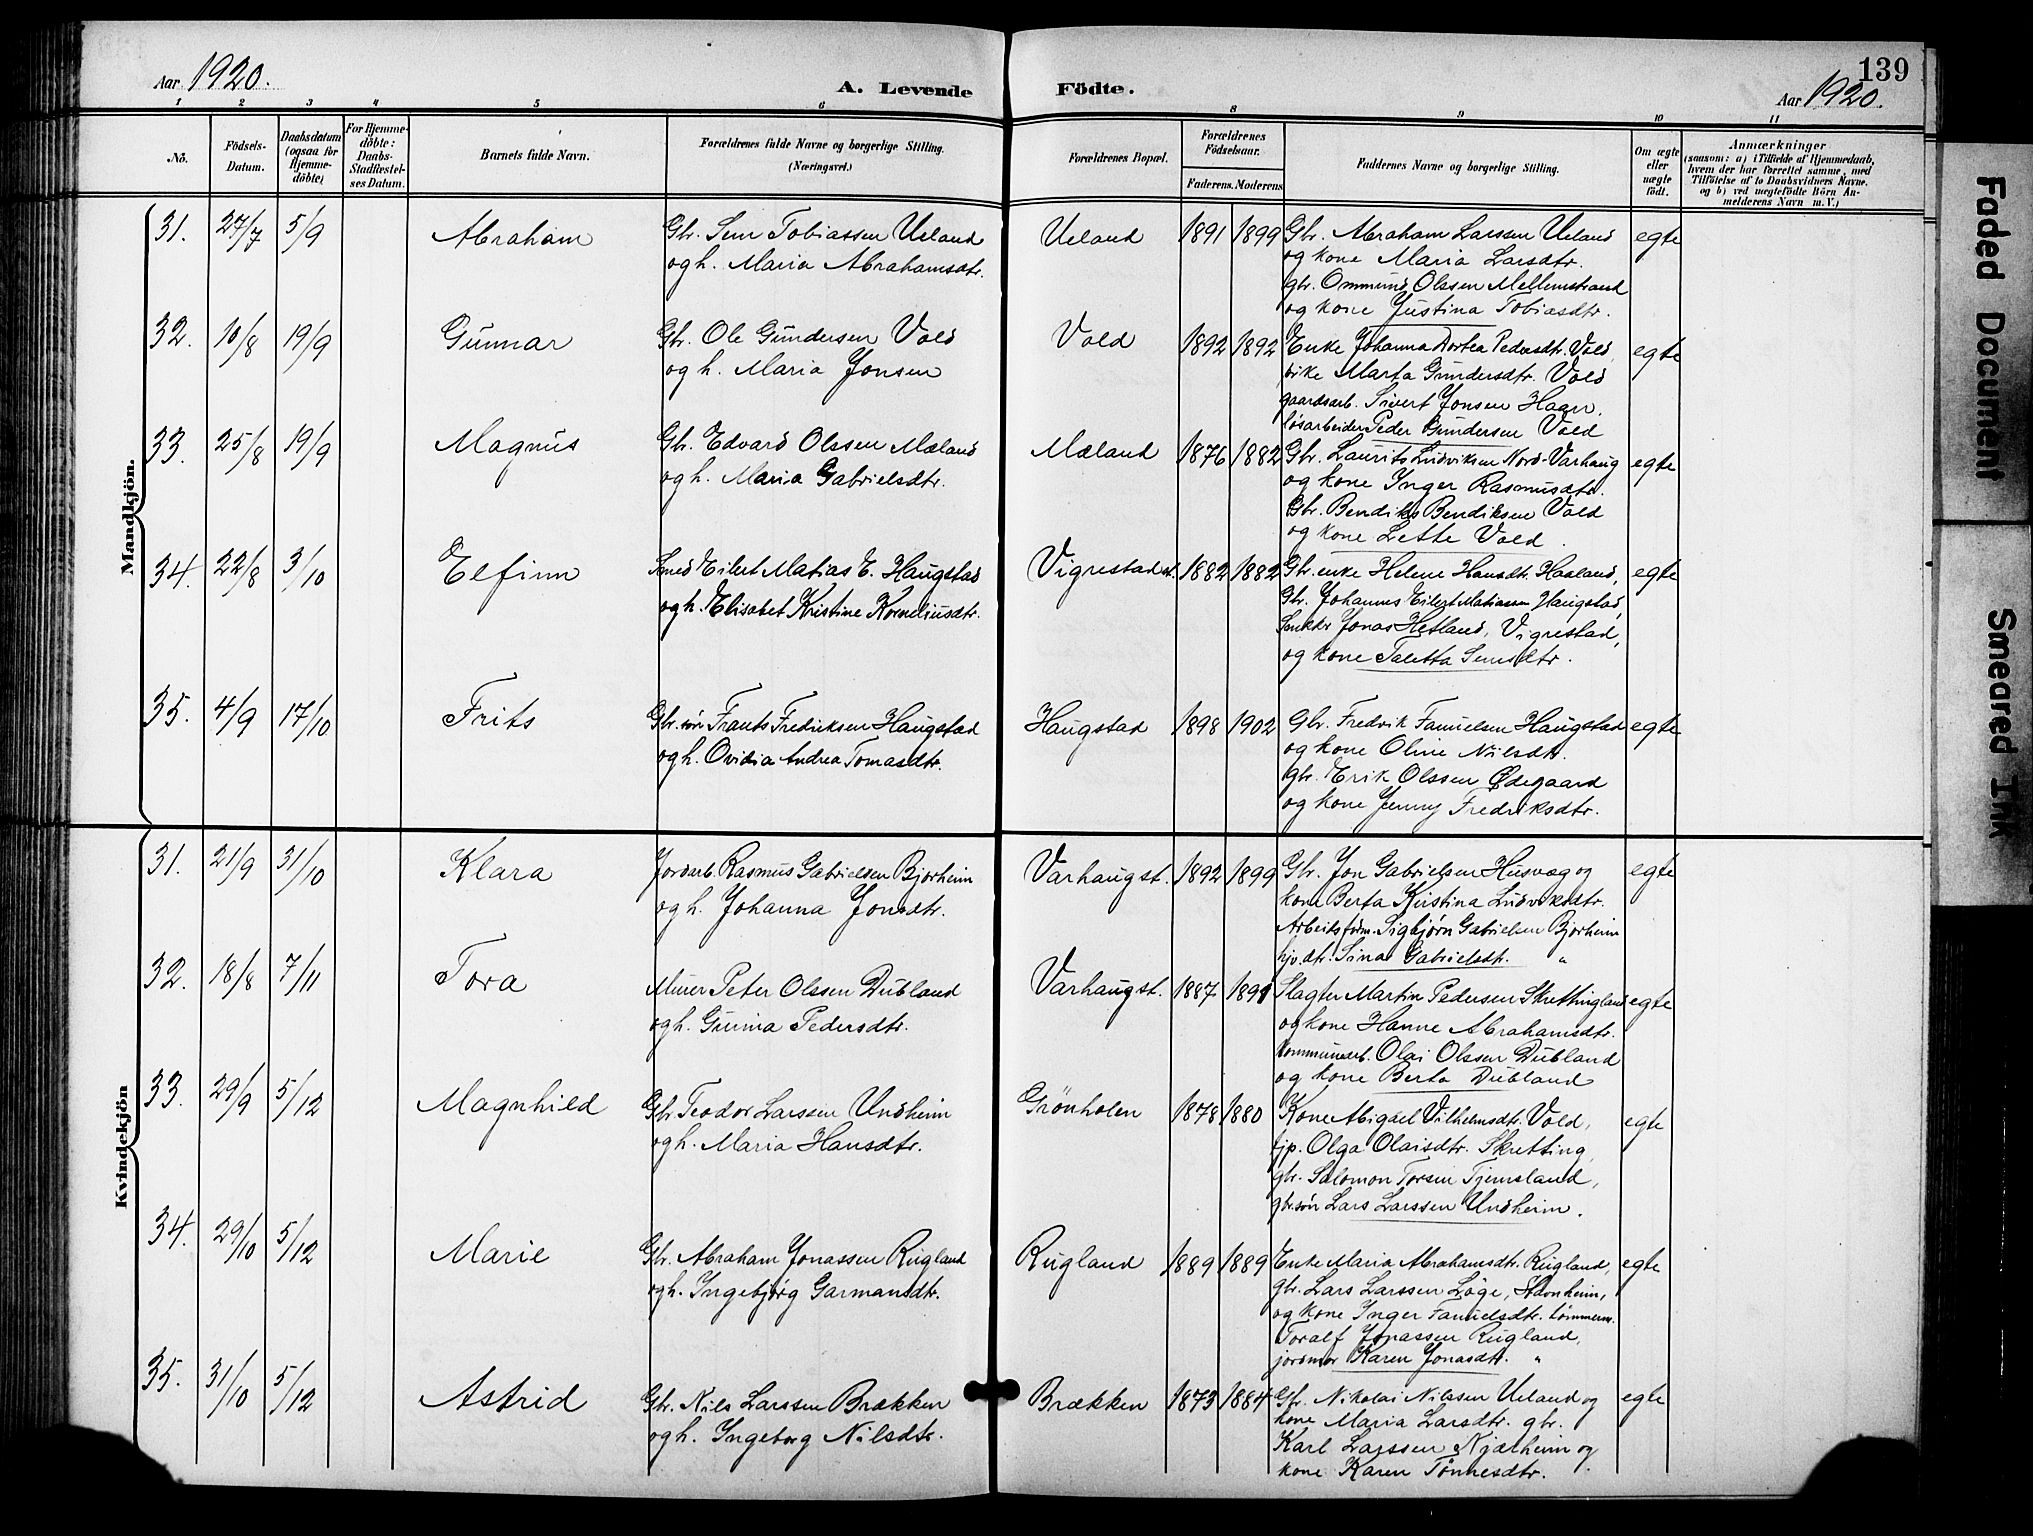 139
Aar 1920.
A. Levende Födte.
Aar 1920.
1 2 3 4 5 6 8 9 10 11
No.
Födsels-
Datum.
Daabsdatum
(ogsaa for
Hjemme-
döbte)
For Hjemme-
döbte:
Daabs-
Stadfæstel-
ses Datum.
Barnets fulde Navn.
Forældrenes fulde Navne og borgerlige Stilling.
(Næringsvei.)
Forældrenes Bopæl.
Forældrenes
Födselsaar.
Faderens. Moderens
Faddernes Navne og borgerlige Stilling.
Om ægte
eller
uægte
födt.
Anmærkninger
(saasom: a) i Tilfælde af Hjemmedaab,
hvem der har forrettet samme, med
Tilföielse af to Daabsvidners Navne.
og b) ved uægtefödte Börn An-
melderens Navn m. V.)
Mandkjön.
31. 27/7 5/9 Abraham
Gbr. Sem Tobiassen Ueland
og h. Maria Abrahamsdtr.
Ueland 1891 1899
Gbr. Abraham Larssen Ueland
og kone Maria Larsdtr.
gbr. Ommund Olssen Mellemstrand
og kone Justina Tobiasdtr.
egte
32. 10/8 19/9 Gunnar
Gbr. Ole Gundersen Vold
og h. Maria Jonsen
Vold 1892 1892
Enke Johanna Dortea Pedersdtr. Vold,
pike Marta Gundersdtr. Vold
gaardsarb. Sivert Jonsen Haar,
løsarbeider Peder Gundersen Vold
egte
33. 25/8 19/9 Magnus
Gbr. Edvard Olssen Mæland
og h. Maria Gabrielsdtr.
Mæland 1876 1882
Gbr. Laurits Ludviksen Nord-Varhaug
og kone Inger Rasmusdtr.
Gbr. Bendiks Bendiksen Vold
og kone Lette Vold.
egte
34. 22/8 3/10 Elfinn
Smed Eilert Matias E. Haugstad
og h. Elisabet Kristine Korneliusdtr.
Vigrestad st. 1882 1882
Gbr. enke Helene Hansdtr. Haaland,
Gbr. Johannes Eilert Matiassen Haugstad
Snekker Jonas Hetland, Vigrestad,
og kone Taletta Semsdtr.
egte
35. 4/9 17/10 Frits
Gbr. søn Frants Fredriksen Haugstad
og h. Ovidia Andrea Tomasdtr.
Haugstad 1898 1902
Gbr. Fredrik Fanuelsen Haugstad
og kone Oline Nilsdtr.
gbr. Erik Olssen Ødegaard
og kone Jenny Fredriksdtr.
egte
Kvindekjön
31. 21/9 31/10 Klara
Jordarb. Rasmus Gabrielsen Bjorheim
og h. Johanna Jonsdtr.
Varhaug st. 1892 1899
Gbr. Jon Gabrielsen Husvæg og
kone Berta Kristina Ludviksdtr.
Arbeitsform. Sigbjørn Gabrielsen Bjorheim
hjv. dtr. Sina Gabrielsdtr. "
egte
32. 18/8 7/11 Tora
Murer Peter Olssen Dubland
og h. Gurina Pedersdtr.
Varhaug st. 1887 1891
Slagter Martin Pedersen Skrettingland
og kone Hanne Abrahamsdtr.
kommunearb. Olai Olssen Dubland
og kone Berta Dubland
egte
33. 29/9 5/12 Magnhild
Gbr. Teodor Larssen Undheim
og h. Maria Hansdtr.
Grönholen 1878 1880
Kone Abigael Vilhelmsdtr. Vold,
tjp. Olga Olaisdtr. Skretting,
gbr. Salomon Torsen Tjemsland,
gbr. søn Lars Larssen Undheim.
egte
34. 29/10 5/12 Marie
Gbr. Abraham Jonassen Rugland
og h. Ingebjørg Garmansdtr.
Rugland 1889 1889
Enke Maria Abrahamsdtr. Rugland,
gbr. Lars Larssen Löge,
og kone Inger Fanuelsdtr. tømmerm.
Toralf Jonassen Rugland,
jordmor Karen Jonasdtr. "
egte
35. 31/10 5/12 Astrid
Gbr. Nils Larssen Brækken
og h. Ingeborg Nilsdtr.
Brækken 1873 1884
Gbr. Nikolai Nilssen Ueland og
kone Maria Larsdtr. gbr.
Karl Larssen Njælheim og
kone Karen Tønnesdtr.
egte
Faded Document
Smeared Ink